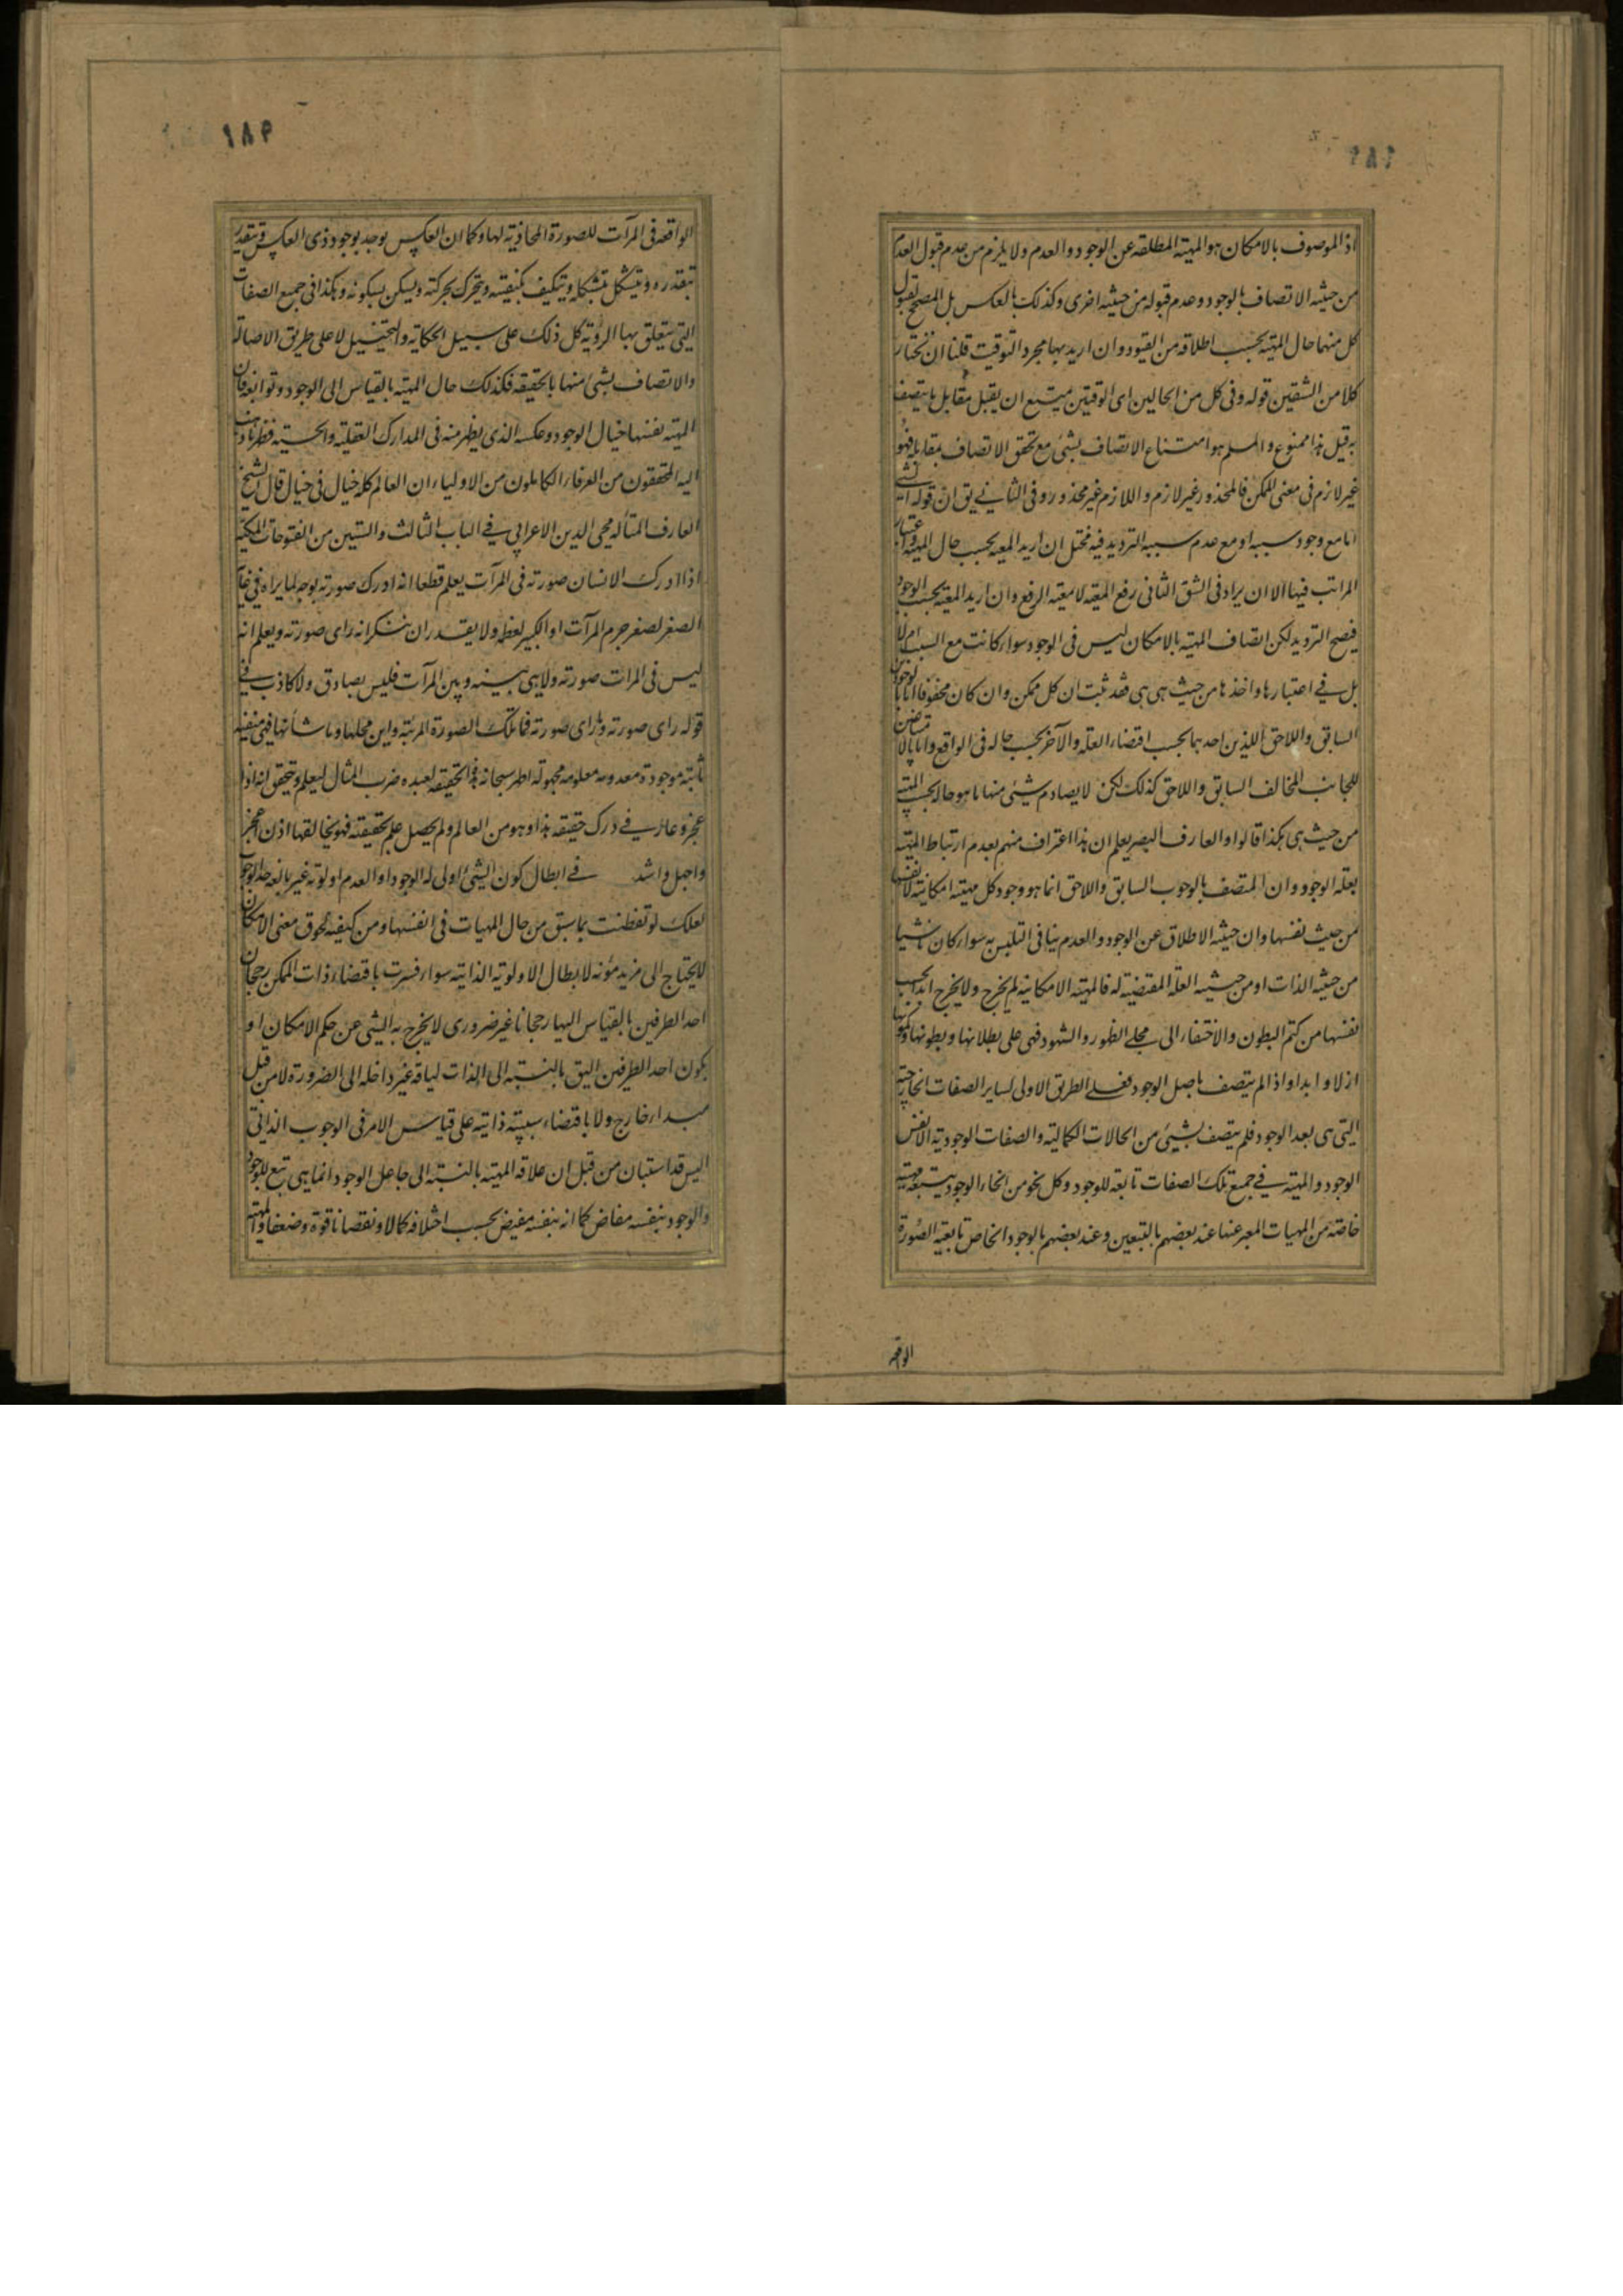 ١٨٢
اذ الموصوف بالامكان هو المهية المطلقه عن الوجود والعدم ولا يلزم من عدم قبول العدم
من حيثيه الاتصاف بالوجود وعدم قبوله من حيثيه اخرى وكذلك بالعكس بل المصحح لقبول
كل منهما حال المهية بحسب اطلاقه من القيود وان اريد بها مجرد التوقيت قلنا ان نختار
كلا من الشقين قوله وفى كل من الحالين اى الوقتين يمتنع ان يقبل مقابل ما يتصف
به قيل هذا ممنوع والمسلم هو امتناع الاتصاف بشئ مع تحقق الاتصاف بمقابله فهو
غير لازم فى معنى الممكن فالمحذور غير لازم واللازم غير محذور وفى الثانى يق ان قوله الشئ
اما مع وجود سببه او مع عدم سببه الترديد فيه مختل ان اريد المعيه بحسب حال المهية واعتبار
المراتب فيها الا ان يراد فى الشق الثانى رفع المعيه لا معيه الرفع وان اريد المعيه بحسب الوجود
فيصح الترديد لكن اتصاف المهية بالامكان ليس فى الوجود سواء كانت مع السبب ام لا
بل فى اعتبارها واخذها من حيث هى هى فقد ثبت ان كل ممكن وان كان محفوفا اما بالوجوبين
السابق واللاحق اللذين احدهما بحسب اقتضاء العلة والآخر بحسب حاله فى الواقع واما بالامتناعين
للجانب المخالف السابق واللاحق كذلك لكن لا يصادم شيئى منها ما هو حاله بحسب المهية
من حيث هى هكذا قالوا والعارف البصير يعلم ان هذا اعتراف منهم بعدم ارتباط المهية
بعلة الوجود وان المتصف بالوجوب السابق واللاحق انما هو وجود كل مهيته امكانية لا نفسها
من حيث نفسها وان حيثيه الاطلاق عن الوجود والعدم ينافى التلبس به سواء كان ناشيا
من حيثيه الذات او من حيثيه العلة المقتضية له فالمهية الامكانية لم يخرج ولا يخرج ابدا بحسب
نفسها من كتم البطون والاختفاء الى مجلى الظهور والشهود فهى على بطلانها وبطونها وكمونها
ازلا وابدا واذا لم يتصف باصل الوجود فعلى الطريق الاولى لساير الصفات الخارجية
التى هى بعد الوجود فلم يتصف بشيئ من الحالات الكمالية والصفات الوجودية الا نفس
الوجود والمهية فى جميع تلك الصفات تابعة للوجود وكل نحو من انحاء الوجود يتبعه مهية
خاصة من المهيات المعبر عنها عند بعضهم بالتعين وعند بعضهم بالوجود الخاص تابعية الصورة
الواقعه
١٨٣
الواقعه فى المرآت للصورة المحاذية لها وكما ان العكس يوجد بوجود ذى العكس ويتقدر
بتقدره ويتشكل بتشكله ويتكيف بكيفيته ويتحرك بحركته ويسكن بسكونه وهكذا فى جميع الصفات
التى يتعلق بها الرؤية كل ذلك على سبيل الحكاية والتخييل لا على طريق الاصالة
والاتصاف بشئ منها بالحقيقه فكذلك حال المهية بالقياس الى الوجود وتوابعه فان
المهية نفسها خيال الوجود وعكسه الذى يظهر منه فى المدارك العقلية والحسية فظهر ما ذهب
اليه المحققون من العرفاء والكاملون من الاولياء ان العالم كله خيال فى خيال قال الشيخ
العارف المتأله محى الدين الاعرابى فى الباب الثالث والستين من الفتوحات المكية
اذا ادرك الانسان صورته فى المرآت يعلم قطعا انه ادرك صورته بوجه لما يراه فى غاية
الصغر لصغر جرم المرآت او الكبير لعظمه ولا يقدر ان ينكر انه راى صورته ويعلم انه
ليس فى المرات صورته ولا هى بينه وبين المرآت فليس بصادق ولا كاذب فى
قوله راى صورته وما راى صورته فما تلك الصورة المرئية واين محلها وما شأنها فهى منفية
ثابتة موجودة معدومه معلومه مجهوله اظهر سبحانه هذه الحقيقه لعبده ضرب المثال ليعلم ويتحقق انه اذا
عجز وحار فى درك حقيقه هذا وهو من العالم ولم يحصل علم بحقيقته فهو بخالقها اذن اعجز
واجهل واشد فى ابطال كون الشئ اولى له الوجود او العدم اولوية غير بالغه حد الوجوب
لعلك لو تفطنت بما سبق من حال المهيات فى انفسها ومن كيفيه لحوق معنى الامكان بها
لا يحتاج الى مزيد مؤنه لابطال الاولوية الذاتية سواء فسرت باقتضاء ذات الممكن رجحان
احد الطرفين بالقياس اليها رجحانا غير ضرورى لا يخرج به الشئ عن حكم الامكان او
بكون احد الطرفين اليق بالنسبه الى الذات لياقه غير داخله الى الضرورة لا من قبل
مبداء خارج ولا باقتضاء سببية ذاتيه على قياس الامر فى الوجوب الذاتى
اليس قد استبان من قبل ان علاقة المهية بالنسبة الى جاعل الوجود انما هى تبع للوجود
والوجود بنفسه مفاض كما انه بنفسه مفيض بحسب اختلافه كمالا ونقصانا قوة وضعفا والمهية